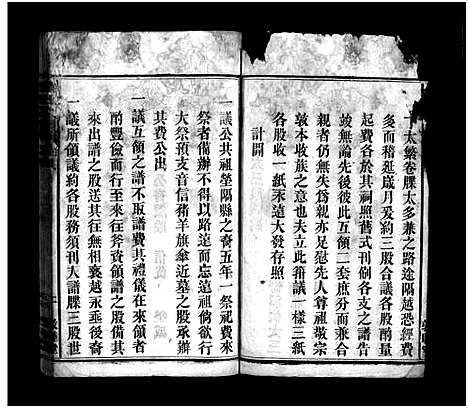 太繁卷牒太多兼之路途隔越恐經費
多而稽遲歲月爰約三股合議各股酌量
起費各於其祠照舊式刊刷各支之譜告
竣無論先後彼此互領二套庶分而兼合
親者仍無失為親亦足慰先人尊祖敬宗
敦本收族之意也夫立此籍議一樣三紙
各股收一紙永遠大發存照
計開
一議公共祖塋隅縣之裔五年一祭祀費來
祭者備辦不得以路遠而忘這祖倘欲行
大祭預支音信豬羊旗傘近墓之股承辦
其費公出
一議互領之譜不取譜費其禮儀在來領者
酌豐儉而行至來往斧資領譜之股備其
來出譜之股送其往無相褻越永垂後裔
一議所領議約各股務須刊入譜牒三股世